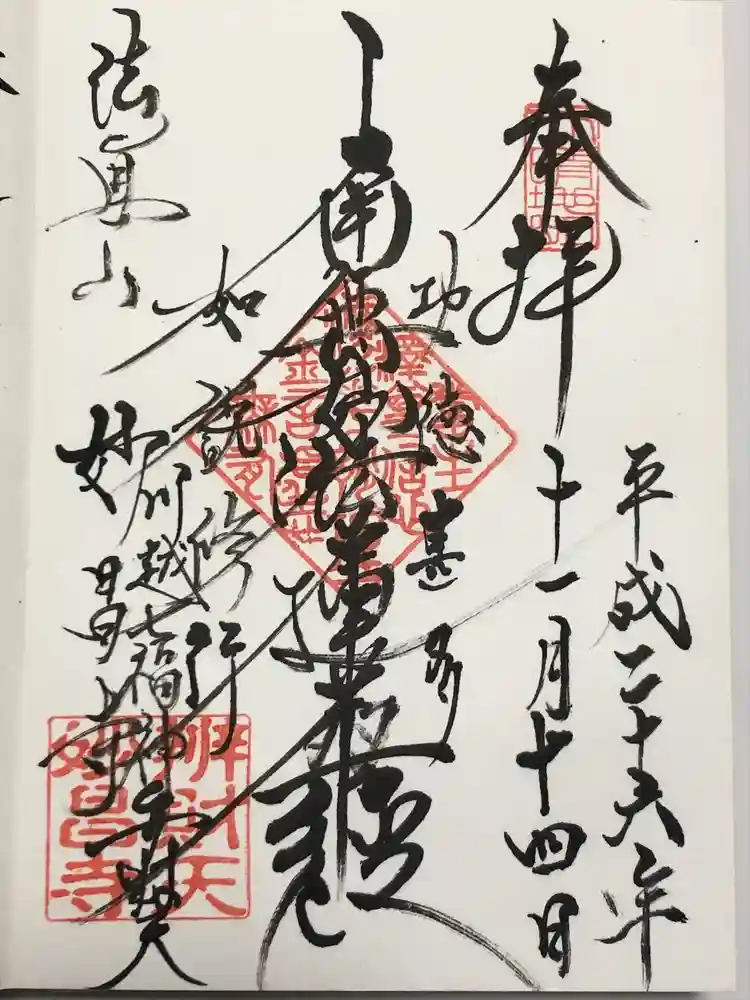 奉拝
平成二十六年
十一月十四日
功徳甚多
南無妙法蓮華経
如説修行
川越七福神弁財天
法眞山
妙昌寺
辨財天
妙昌寺